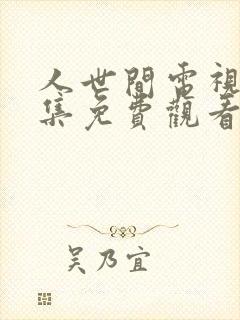 人世間電視
集免費觀看
吴乃宜